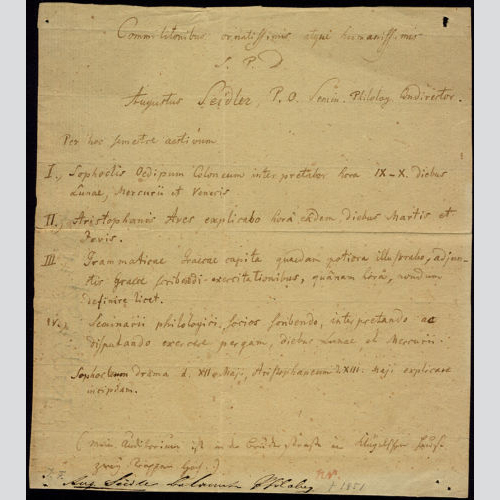 Commilitonibus ornatissimis atque humanissimis
S. P. D
Augustus Seidler, P. O. Semin. Philolog. Condirector.
Per hoc semestre aestivum
I., Sophoclis Oedipum Coloneum interpretabor hora IX-X. diebus
Lunae, Mercurii et Veneris
II., Aristophanis Aves explicabo horâ eâdem, diebus Martis et
Jovis.
III Grammaticae Graecae capita quaedam potiora illustrabo, adjun-
ctis Graece scribendi exercitationibus, quânam horâ, nondum
definire licet.
IV. Seminarii philologici socios scribendo, interpretando ac
disputando exercere pergam, diebus Lunae et Mercurii.
Sophocleum drama d. XII Maji, Aristophaneum d. XIII. Maji explicare
incipiam.
(Mein Auditorium ist in der Straße im
zwey Treppen hoch.)
Aug Seidler Philolog
† 1851